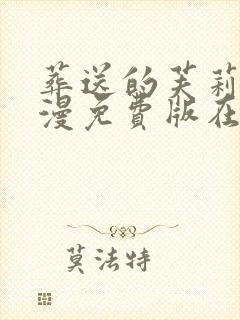 葬送的芙莉
漫免費版在
莫法特